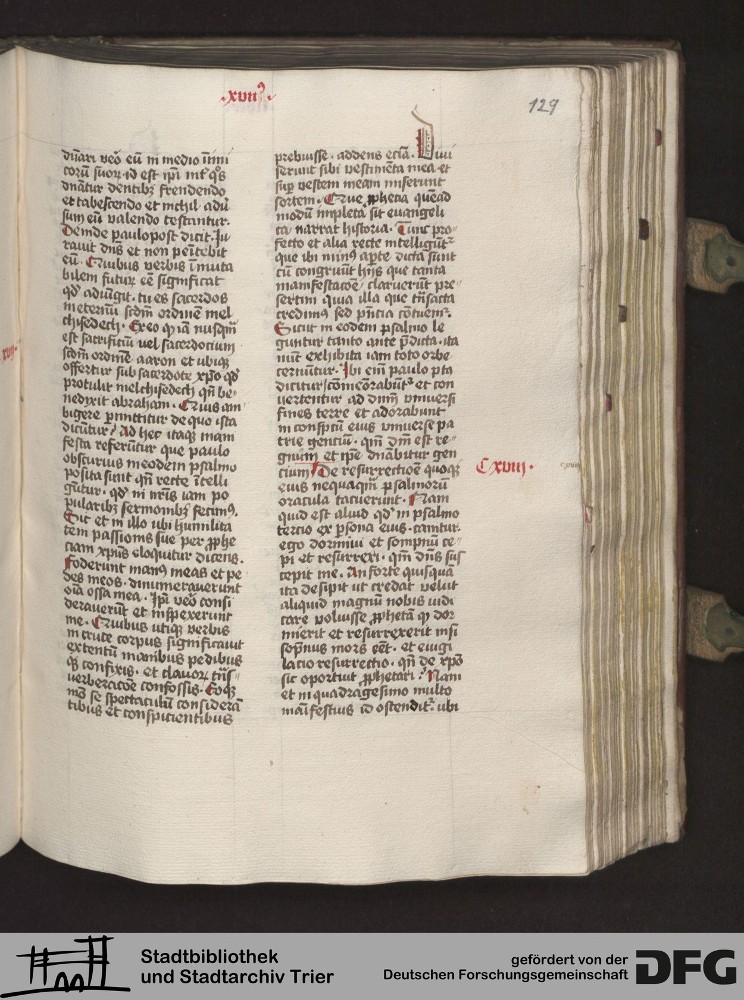 ·xvii⁹·
129
dn̄ari veō eū in medio īimi
corū suoꝝ· id est ip̄i int̄ q̄s
dn̄atur dentibꝫ frendendo
et tabescendo et nichil adū
sum eū valendo testantur·
Deinde paulopost dicit· Iu
rauit dn̄s et non penītebit
eū· Quibus verbis īmuta
bilem futuꝝ eē significat
qd̛ adiūgit· tu es sacerdos
in eternū scd̄m ordinē mel
chisedech· Ex eo qͥ iā nusqͣm̄
est sacrificiū vel sacerdotium
scd̄m ordinē aaron et ubiqꝫ
offertur sub sacerdote xp̄o qd̛
protulit melchisedech qn̄ be
nedixit abraham· Quis am
bigere ꝑmittitur de quo ista
dicūtur· Ad hec itaqꝫ mani
festa referūtur que paulo
obscurius in eodem psalmo
posita sunt qn̄ recte ītelli
gūtur· qd̛ in nr̄is iam po
pularibꝫ sermonibꝫ fecim⁹·
Sic et in illo ubi humilita
tem passionis sue per ꝓphe
ciam xpūs eloquitur dicens·
Foderunt man⁹ meas et pe
des meos· dinumerauerunt
oīa ossa mea· Ip̄i veō consi
derauerūt et inspexerunt
me· Quibus utiqꝫ verbis
in cruce corpus significauit
extentū manibus pedibus
qꝫ confixis· et clauoꝝ tͣns
verberacōe confossis· Eoqꝫ
mō se spectaculū considerā
tibus et conspicientibus
prebuisse· addens eciā· Diui
serunt sibi vestimēta mea· et
suꝑ vestem meam miserunt
sortem· Que ꝓphetia quēad
modū impleta sit euangeli
ca narrat historia· Tunc pro
fecto et alia recte intelligūtʳ
que ibi min⁹ aꝑte dicta sunt
cū congruūt hijs que tanta
manifestacōe claruerūt pre
sertim quia illa que tn̄sacta
credim⁹ sed pn̄cia cōtuem̄ʳ·
Sicut in eodem psalmo le
guntur tanto ante p̄dicta· ita
nūc exhibita iam toto orbe
cernūtur· Ibi eīm paulo pꝰta
dicitur/ cōmēorabūtʳ et con
uertentur ad dn̄m uniuersi
fines terre et adorabunt
in conspctū eius uniuerse pa
trie genciū· qm̄ dn̄i est re
gnum et ipē dn̄abitur gen
cium/ De resurrectiōe quoqꝫ
eius nequaqͣm̄ psalmorū
oracula tacuerunt· Nam
quid est aliud qd̛ in psalmo
tercio ex ꝑsona eius· cantur·
ego dormiui et sompnū ce
pi et resurrexi· qm̄ dn̄s sus
cepit me· An forte quisquā
ita desipit ut credat velut
aliquid magnū nobis indi
care voluisse ꝓphetā qͥ dor
mierit et resurrexerit nisi
sop̄nus mors eēt· et euigi
lacio resurrectio· qn̄ de xp̄o
sic oportuit ꝓphetari· Nam
et in quadragesimo multo
manīfestius id ostenditʳ· ubi
C xviij·
Stadtbibliothek
und Stadtarchiv Trier
gefördert von der
Deutschen Forschungsgemeinschaft
DFG